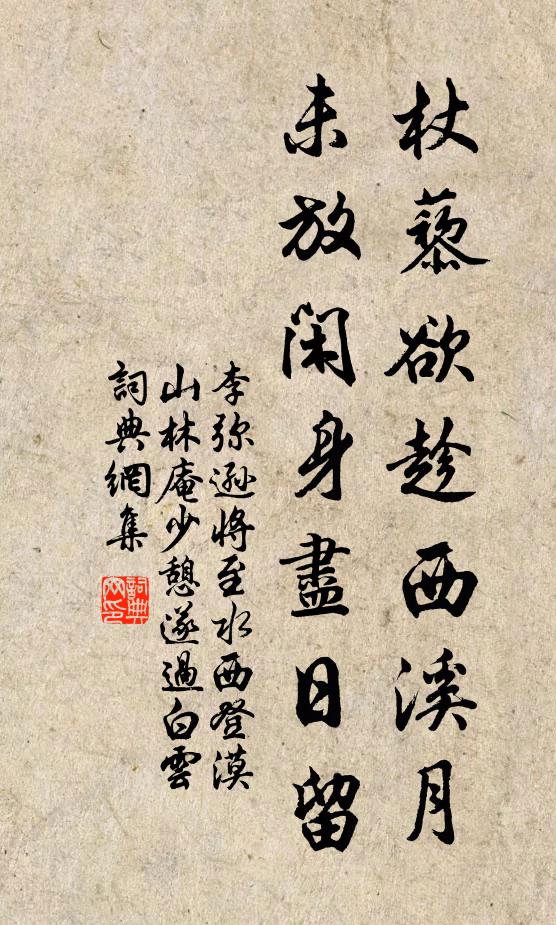 杖藜欲趁西溪月
未放閑身盡日留
李弥遜將至水西登漠
山林庵少憩遂過白雲
詞典網集
詞典網印